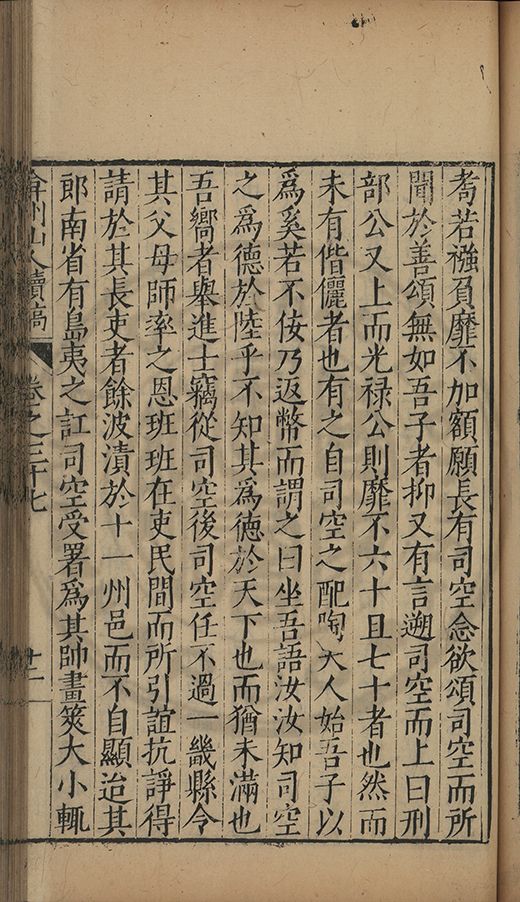 耈若襁負靡不加額願長有司空念欲頌司空而所
聞於善頌無如吾子者抑又有言遡司空而上曰刑
部公又上而光禄公則靡不六十且七十者也然而
未有偕儷者也有之自司空之配陶夫人始吾子以
爲奚若不佞乃返幣而謂之曰坐吾語汝汝知司空
之爲德於陸乎不知其爲德於天下也而猶未滿也
吾嚮者舉進士竊從司空後司空任不過一畿縣令
其父母師率之恩班班在吏民間而所引誼抗諍得
請於其長吏者餘波漬於十一州邑而不自顯迨其
郎南省有島夷之訌司空受署爲其帥畫筴大小輒
弇州山人續稿 卷之三十七 廿二